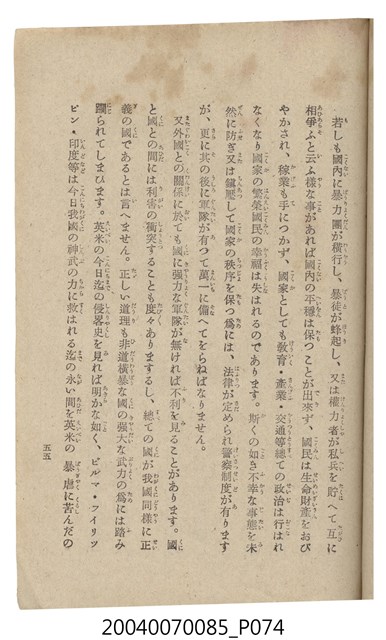 若しも國內に暴力團が橫行し、暴徒が蜂起し、又は權力者が私兵を貯へて互に
相爭ふと云ふ樣な事があれば國內の平穩は保つことが出來ず、國民は生命財產をおび
やかされ、稼業も手につかず、國家としても敎育・產業・交通等總ての政治は行はれ
なくなり國家の繁榮國民の幸福は失はれるのであります。斯くの如き不幸な事態を未
然に防ぎ又は鎭壓して國家の秩序を保つ爲には、法律が定められ警察制度が有ります
が、更に其の後に軍隊が有つて萬一に備へてをらねばなりません。
又外國との關係に於ても國に强力な軍隊が無ければ不利を見ることがあります。國
と國との間には利害の衝突することも度々ありまするし、總ての國が我國同樣に正
義の國であるとは言へません。正しい道理も非道橫暴な國の强大な武力の爲には踏み
躙られてしまひます。英米の今日迄の侵畧史を見れば明かな如く、ビルマ・フイリツ
ピン・印度等は今日我國の神武の力に救はれる迄の永い間を英米の暴虐に苦んだの
五五
20040070085_P074